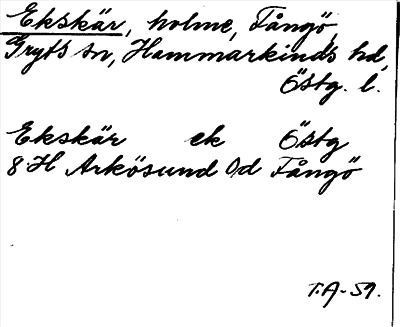 Ekskär, holme, Fångö,
Gryts sn, Hammarkinds hd,
Östg. l.
Ekskär ek Östg
8 H Arkösund Od Fångö
T.A-59.